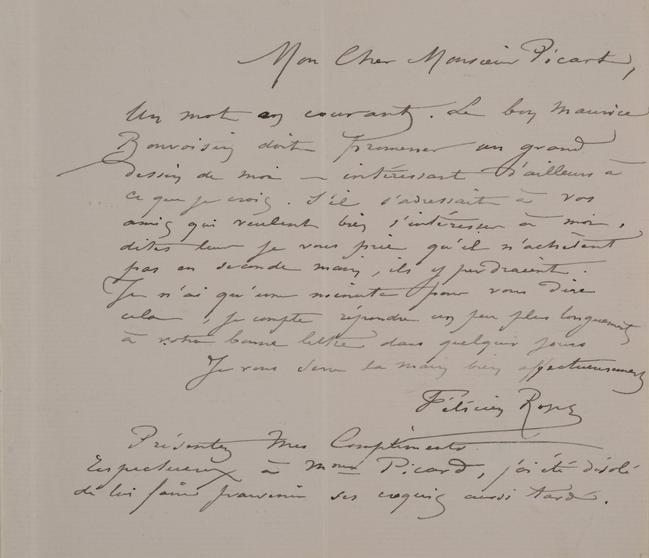 Mon Cher Monsieur Picard,
Un mot en courant. Le bon Maurice
Bonvoisin doit promener un grand
dessin de moi – intéressant d'ailleurs à
ce que je crois. S'il s'adressait à vos
amis qui veulent bien s'intéresser à moi,
dites leur je vous prie qu'il n'achètent
pas en seconde main, ils y perdraient.
Je n'ai qu'une minute pour vous dire
cela, je compte répondre un peu plus longuement
à votre bonne lettre dans quelques jours
Je vous serre la main bien affectueusement
Félicien Rops
Présentez Mes Compliments
Respectueux à Mme Picard, j'ai été désolé
de lui faire parvenir ses croquis aussi tard.